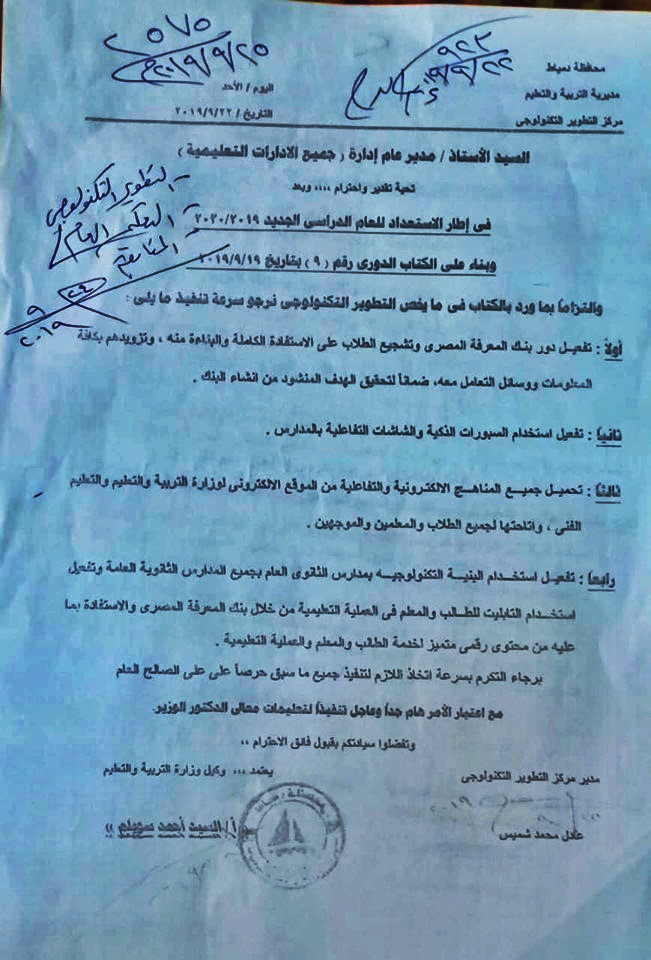 محافظة دمياط
مديرية التربية والتعليم
مركز التطوير التكنولوجى
٩٢٢
٢٠١٩/٩/٢٢
٢٠٧٥
٢٠١٩/٩/٢٥
اليوم / الأحد
التاريخ / ٢٠١٩/٩/٢٢
السيد الأستاذ / مدير عام إدارة ( جميع الادارات التعليمية )
تحية تقدير واحترام ،،،، وبعد
- التطوير التكنولوجى
- التعليم العام
- المتابعة
٩/٢٤
٢٠١٩
فى إطار الاستعداد للعام الدراسى الجديد ٢٠٢٠/٢٠١٩
وبناء على الكتاب الدورى رقم ( ٩ ) بتاريخ ٢٠١٩/٩/١٩
والتزاما بما ورد بالكتاب فى ما يخص التطوير التكنولوجى نرجو سرعة تنفيذ ما يلى :
أولاً : تفعيل دور بنك المعرفة المصرى وتشجيع الطلاب على الاستفادة الكاملة والبناءة منه ، وتزويدهم بكافة
المعلومات ووسائل التعامل معه، ضماناً لتحقيق الهدف المنشود من انشاء البنك .
ثانيا : تفعيل استخدام السبورات الذكية والشاشات التفاعلية بالمدارس .
ثالثا : تحميل جميع المناهج الالكترونية والتفاعلية من الموقع الالكترونى لوزارة التربية والتعليم والتعليم
الفنى ، واتاحتها لجميع الطلاب والمعلمين والموجهين .
رابعا : تفعيل استخدام البنية التكنولوجيه بمدارس الثانوى العام بجميع المدارس الثانوية العامة وتفعيل
استخدام التابليت للطالب والمعلم فى العملية التعليمية من خلال بنك المعرفة المصرى والاستفادة بما
عليه من محتوى رقمى متميز لخدمة الطالب والمعلم والعملية التعليمية .
برجاء التكرم بسرعة اتخاذ اللازم لتنفيذ جميع ما سبق حرصاً على على الصالح العام
مع اعتبار الأمر هام جداً وعاجل تنفيذاً لتعليمات معالى الدكتور الوزير
وتفضلوا سيادتكم بقبول فائق الاحترام ،،
مدير مركز التطوير التكنولوجى
يعتمد ،،، وكيل وزارة التربية والتعليم
٢٠١٩
عادل محمد شميس
أ/ السيد أحمد سويلم ،،